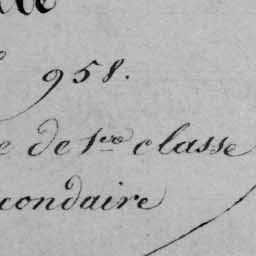 958.
de 1re classe
condaire